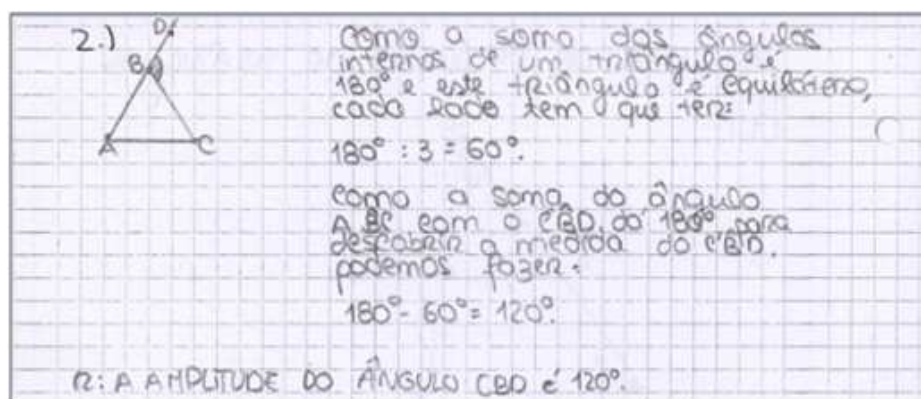 2.)
D
B
A
C
Como a soma dos ângulos
internos de um triângulo é
180° e este triângulo é equilátero,
cada lado tem que ter:
180° : 3 = 60°.
Como a soma do ângulo
ABC com o CBD dá 180° para
descobrir a medida do CBD.
podemos fazer:
180° - 60° = 120°.
R: A AMPLITUDE DO ÂNGULO CBD é 120°.